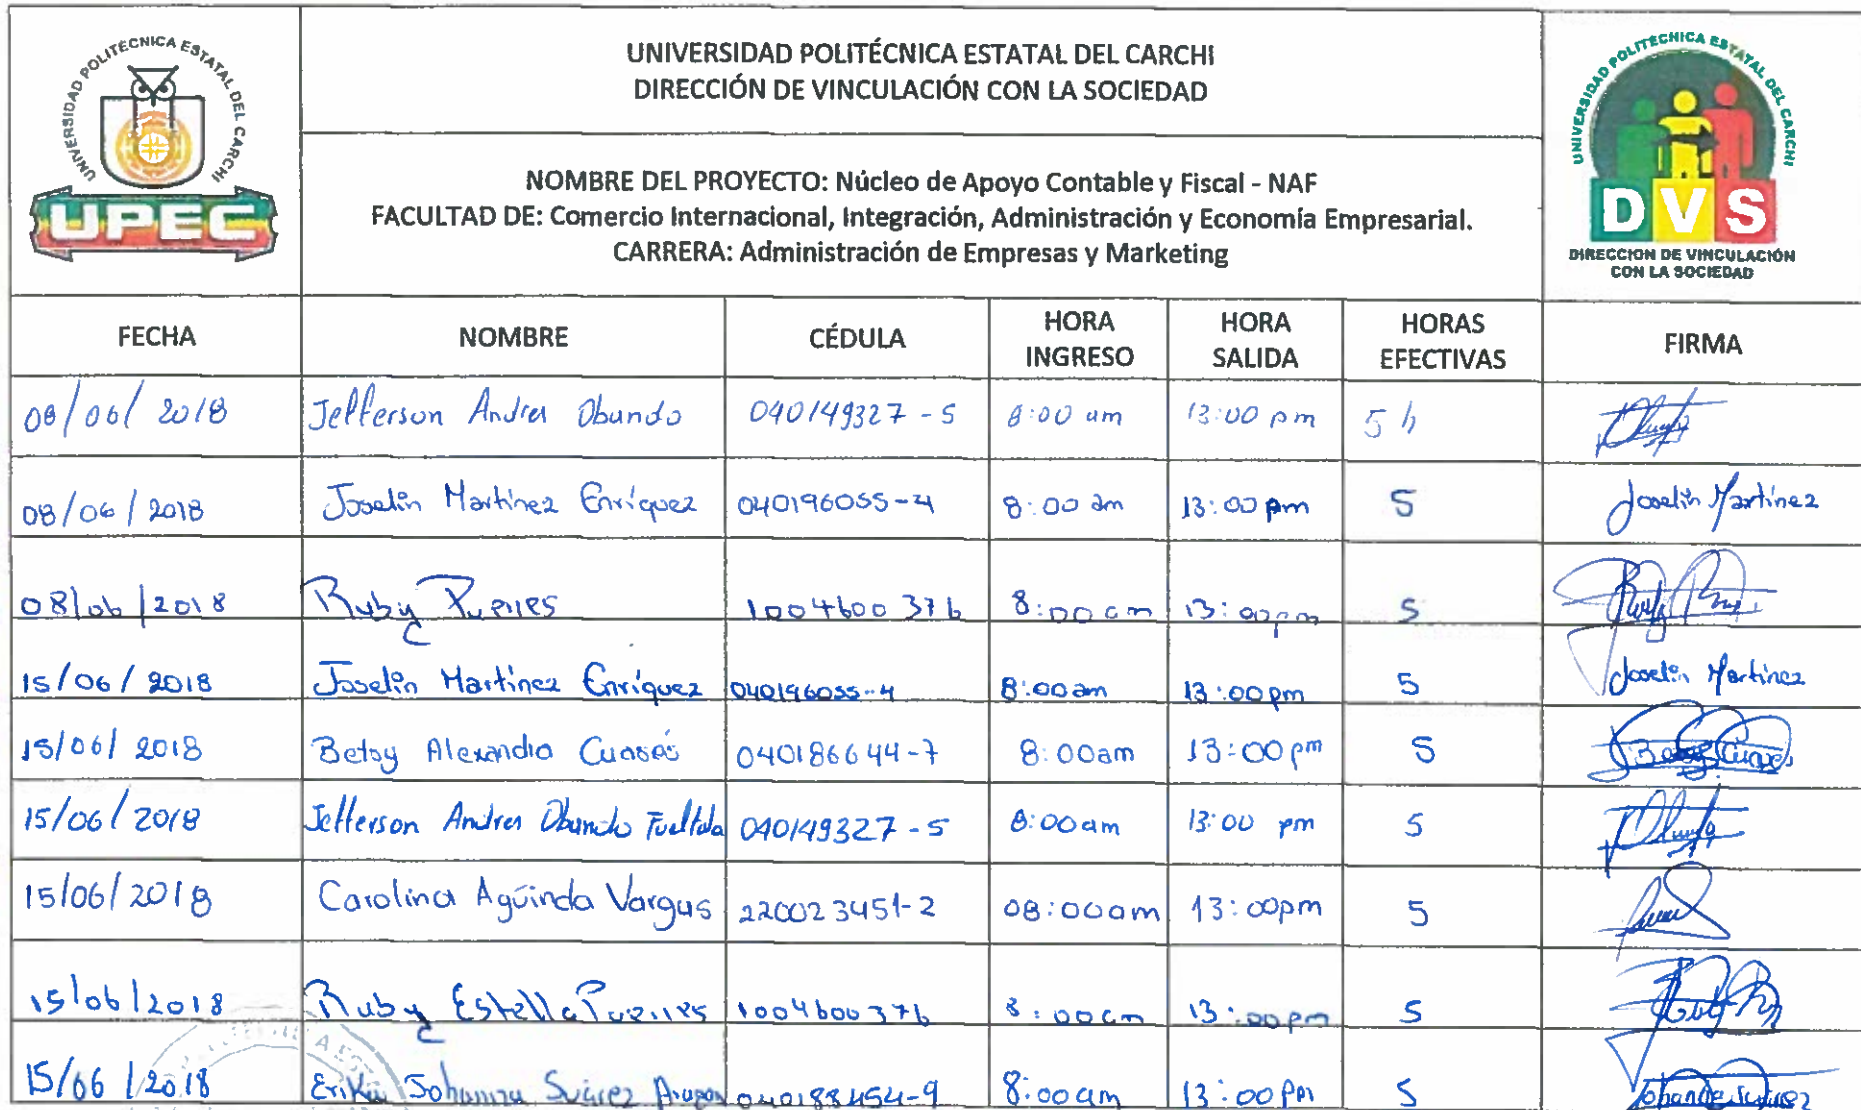 UNIVERSIDAD POLITÉCNICA ESTATAL DEL CARCHI
UPEC
UNIVERSIDAD POLITÉCNICA ESTATAL DEL CARCHI
DIRECCIÓN DE VINCULACIÓN CON LA SOCIEDAD
NOMBRE DEL PROYECTO: Núcleo de Apoyo Contable y Fiscal - NAF
FACULTAD DE: Comercio Internacional, Integración, Administración y Economía Empresarial.
CARRERA: Administración de Empresas y Marketing
UNIVERSIDAD POLITECHICA ESTATAL DEL CARCHI
DVS
DIRECCION DE VINCULACIÓN
CON LA SOCIEDAD
FECHA NOMBRE CÉDULA HORA INGRESO HORA SALIDA HORAS EFECTIVAS FIRMA
08/06/2018 Jefferson Andres Obando 040149327-5 8:00 am 13:00 pm 5 h
08/06/2018 Joselin Martínez Enríquez 040196055-4 8:00 am 13:00 pm 5 Joselin Martínez
08/06/2018 Ruby 1004600376 8:00 am 13:00pm 5
15/06/2018 Joselin Martínez Enríquez 040196055-4 8:00am 13:00pm 5 Joselin Martínez
15/06/2018 Betsy Alexandra 040186644-7 8:00am 13:00pm 5
15/06/2018 Jefferson Andres Obando 040149327-5 8:00am 13:00 pm 5
15/06/2018 Carolina Agüinda Vargas 220023451-2 08:00am 13:00pm 5
15/06/2018 Ruby Estella 1004600376 8:00am 13:00pm 5
15/06/2018 Erika Johanna Suárez 040188454-9 8:00am 13:00pm 5